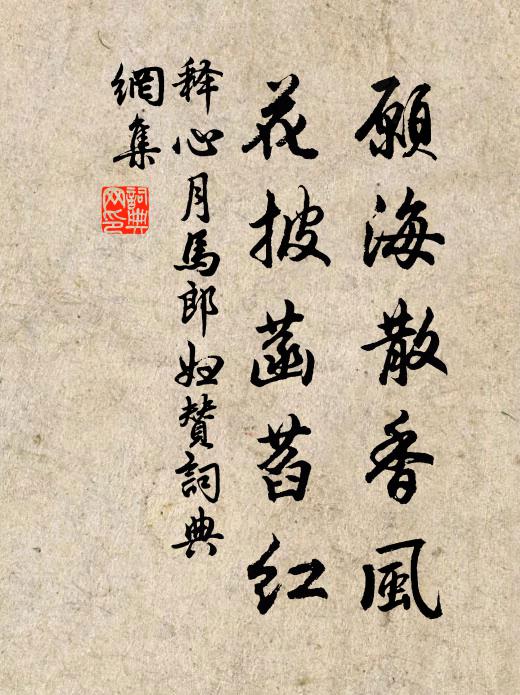 願海散香風
花披菡萏紅
释心月馬郎妇赞詞典
網集
詞典網印